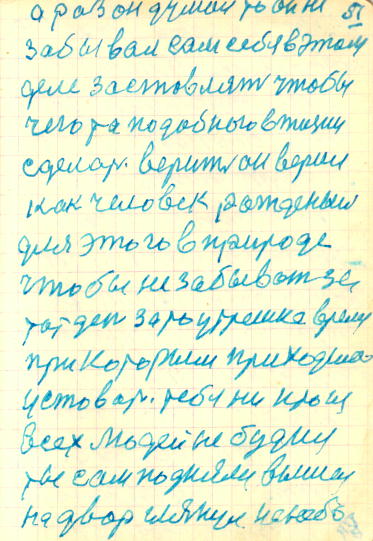 а раз он думал то он не 51
забывал сам себя в этом
деле заставлят чтобы
чего та подобного в жизни
сделат. верит и он верил
как человек рожденыи
для этого в природе
чтобы не забыват за
тот ден за то утрешка время
при котором приходилос
устават. тебя ни
всех людей не будил
ты сам поднялся вышел
на двор глянул на небо